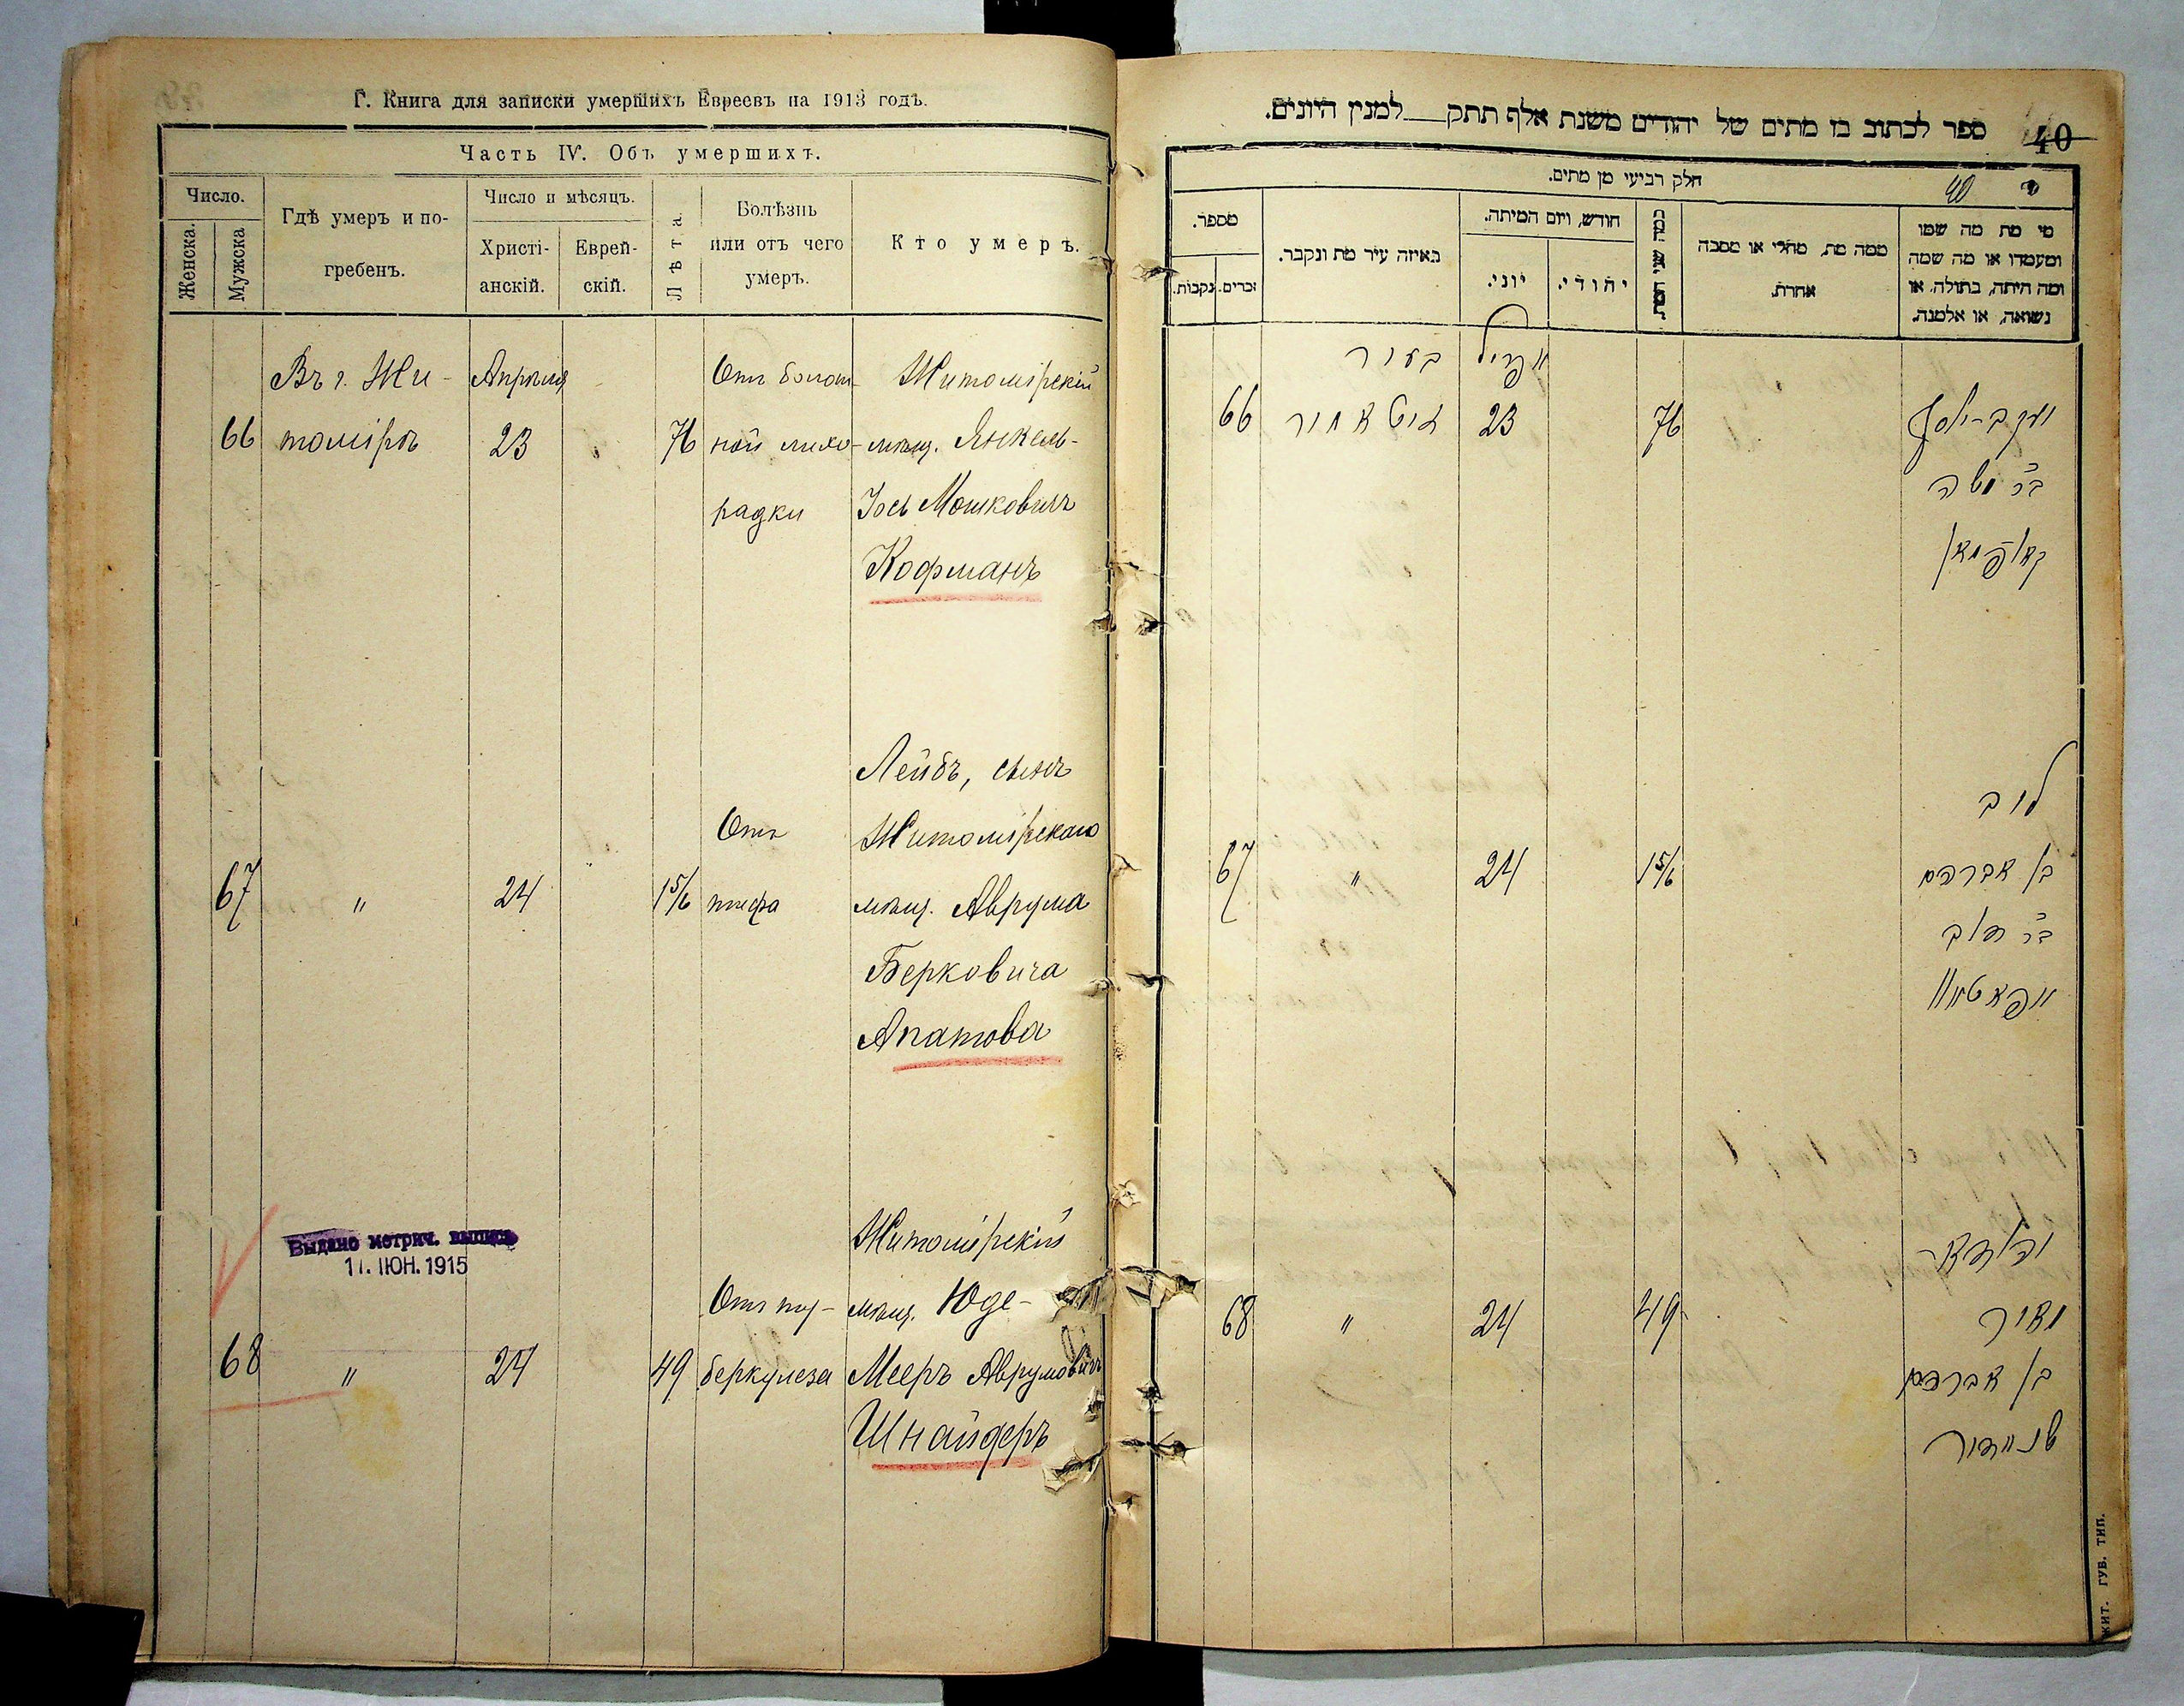 Г. Книга для записки умершихъ Евреевъ на 1913 годъ.
Часть IV. Объ умершихъ.
Число.
Женска.
Мужска.
Гдѣ умеръ и по-
гребенъ.
Число и мѣсяцъ.
Христі-
анскій.
Еврей-
скій.
Лѣта.
Болѣзнь
или отъ чего
умеръ.
Кто умеръ.
Въ г. Жи-
Апрѣля
Отъ болот-
Житомірскій
66
томірѣ
23
76
ной лихо-
мѣщ. Янкель-
радки
Іось Мошковичъ
Кофманъ
Лейбъ, сынъ
Отъ
Житомірскаго
67
"
24
1 5/6
тифа
мѣщ. Аврума
Берковича
Апатова
Выдано метрич. выпись
11. ІЮН. 1915
Житомірскій
Отъ ту-
мѣщ. Юде-
68
"
24
49
беркулеза
Мееръ Аврумовичъ
Шнайдеръ
ספר לכתוב בו מתים של יהודים משנת אלף תתק למנין היונים.
40
חלק רביעי מן מתים.
40
מספר.
זכרים.
נקבות.
באיזה עיר מת ונקבר.
חודש, ויום המיתה.
יוני.
יהודי.
כמה שני המת
ממה מת, מחלי או מסבה
אחרת.
מי מת מה שמו
ומעמדו או מה שמה
ומה היתה, בתולה, או
נשואה, או אלמנה.
בעיר
אפריל
66
זיטאמיר
23
76
יעקב-יוסף
בר משה
קאפמאן
לייב
67
"
24
1 5/6
בן אברהם
בר
68
"
24
49
מאיר
בן אברהם
שניידער
ЖИТ. ГУБ. ТИП.